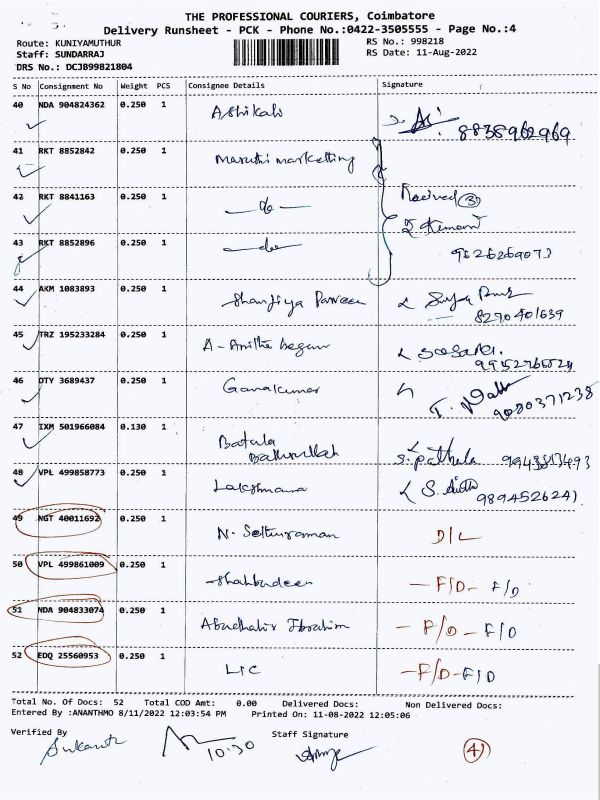 THE PROFESSIONAL COURIERS, Coimbatore
Delivery Runsheet - PCK - Phone No.:0422-3505555 - Page No.:4
Route: KUNIYAMUTHUR
RS No.: 998218
Staff: SUNDARRAJ
RS Date: 11-Aug-2022
DRS No.: DCJB99821804
S No Consignment No Weight PCS Consignee Details Signature
40 NDA 904824362 0.250 1 Ashikali
8838962969
41 RKT 8852842 0.250 1 Maruthi marketting
42 RKT 8841163 0.250 1 - do - Received (3)
43 RKT 8852896 0.250 1 - do -
9626269073
44 AKM 1083893 0.250 1 Shanjiya Parveen
8270401639
45 TRZ 195233284 0.250 1 A - Anitha begam
46 DTY 3689437 0.250 1 Ganakumar
9080371238
47 IXM 501966084 0.130 1 Batula
S. pathula 9943813493
48 VPL 499858773 0.250 1 Lakshmana
9894526241
49 NGT 40011692 0.250 1 N. Sethuraman D/L
50 VPL 499861009 0.250 1 Shahbudeen - F/D - F/D
51 NDA 904833074 0.250 1 Ibrahim - F/D - F/D
52 EDQ 25560953 0.250 1 LIC - F/D - F/D
Total No. Of Docs: 52 Total COD Amt: 0.00 Delivered Docs: Non Delivered Docs:
Entered By :ANANTHMO 8/11/2022 12:03:54 PM Printed On: 11-08-2022 12:05:06
Verified By Staff Signature
Sukanth 10.30
41